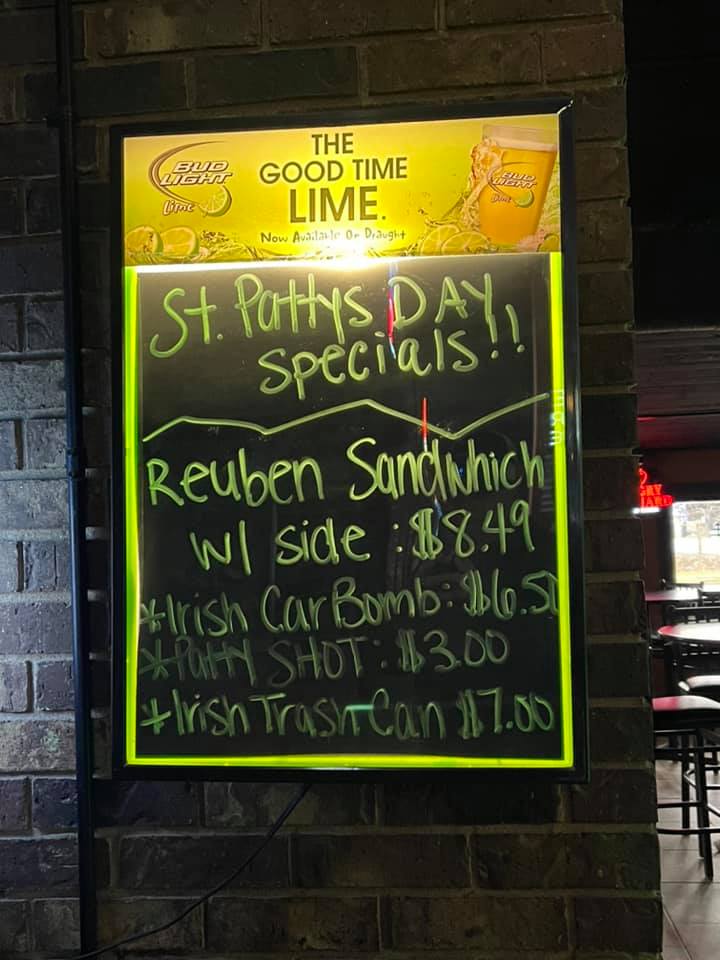 BUD LIGHT Lime
THE
GOOD TIME
LIME.
Now Available On Draught
BUD LIGHT Lime
St. Pattys DAY
specials!!
Reuben Sandwhich
w/ side : $8.49
*Irish Car Bomb: $6.50
*Patty SHOT: $3.00
*Irish Trash Can $7.00